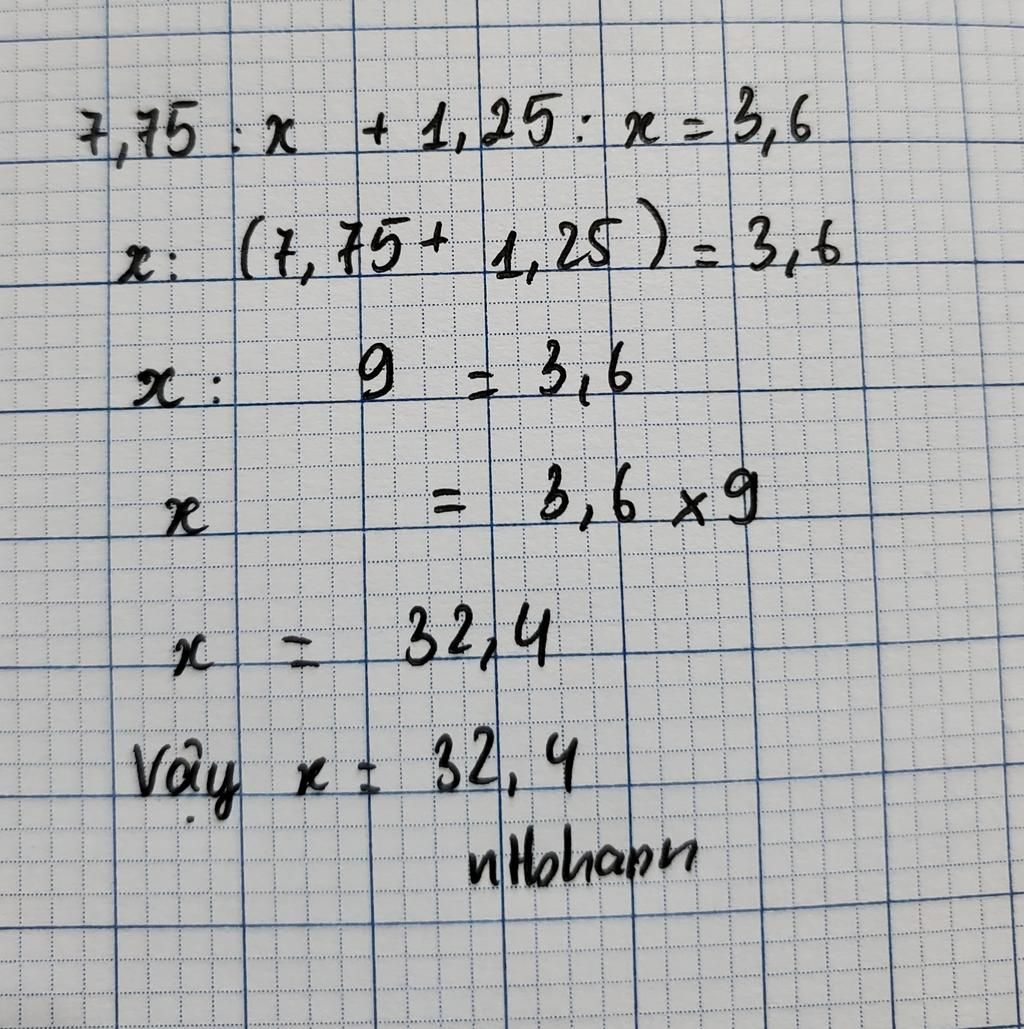 7,75 : x + 1,25 : x = 3,6
x : (7,75 + 1,25) = 3,6
x : 9 = 3,6
x = 3,6 x 9
x = 32,4
Vậy x = 32,4